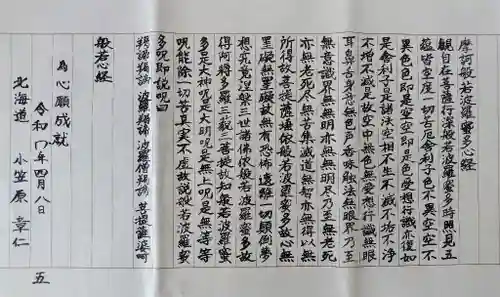 摩訶般若波羅蜜多心経
観自在菩薩行深般若波羅蜜多時照見五
蘊皆空度一切苦厄舎利子色不異空空不
異色色即是空空即是色受想行識亦復如
是舎利子是諸法空相不生不滅不垢不浄
不増不減是故空中無色無受想行識無眼
耳鼻舌身意無色声香味触法無眼界乃至
無意識界無無明亦無無明尽乃至無老死
亦無老死尽無苦集滅道無智亦無得以無
所得故菩提薩埵依般若波羅蜜多故心無
罣礙無罣礙故無有恐怖遠離一切顛倒夢
想究竟涅槃三世諸佛依般若波羅蜜多故
得阿耨多羅三藐三菩提故知般若波羅蜜
多是大神呪是大明呪是無上呪是無等等
呪能除一切苦真実不虚故説般若波羅蜜
多呪即説呪曰
羯諦羯諦 波羅羯諦 波羅僧羯諦 菩提薩婆訶
般若心経
為心願成就
令和 年四月八日
北海道 小笠原 章仁
五